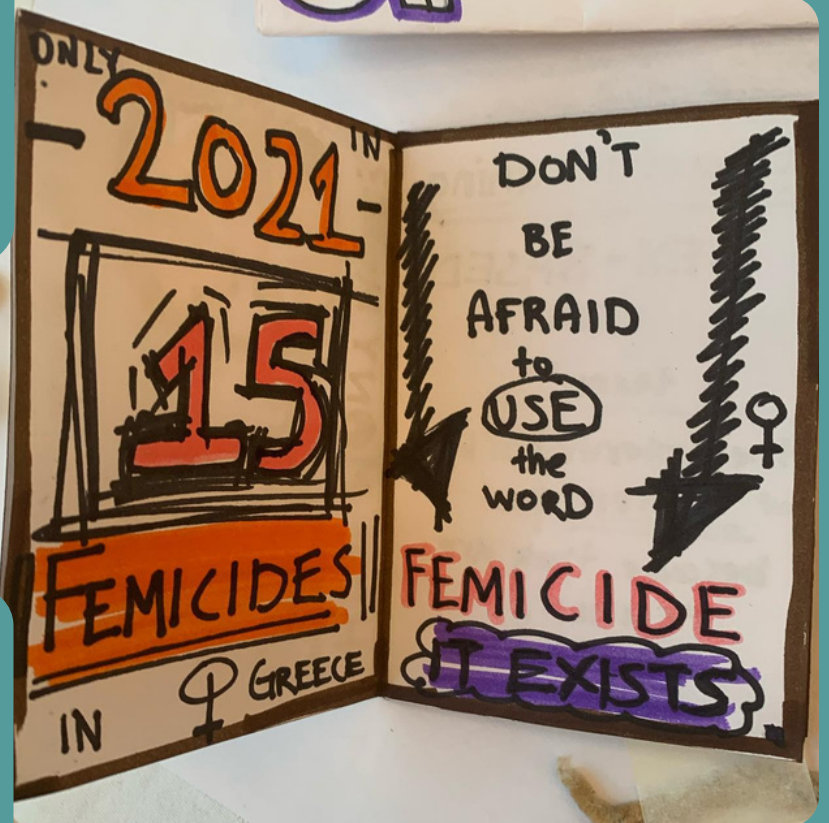 ONLY
IN
2021
15
FEMICIDES
IN GREECE
DON'T
BE
AFRAID
to
USE
the
WORD
FEMICIDE
IT EXISTS